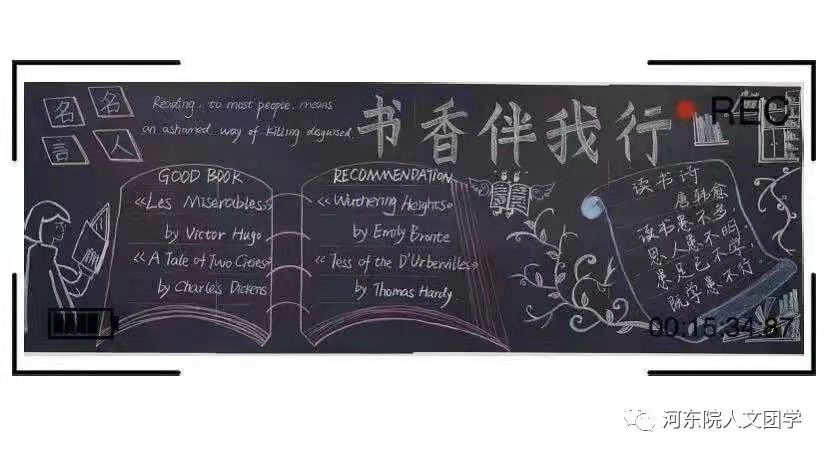 名名
言人
Reading, to most people, means
an ashamed way of killing disguised.
书香伴我行
REC
GOOD BOOK
《Les Miserables》
by Victor Hugo
《A Tale of Two Cities》
by Charles Dickens
RECOMMENDATION
《Wuthering Heights》
by Emily Bronte
《Tess of the D'Urbervilles》
by Thomas Hardy
读书诗
唐韩愈
读书患不多,
思人患不明,
患足已不学,
既学患不行。
00:15:34:87
河东院人文团学